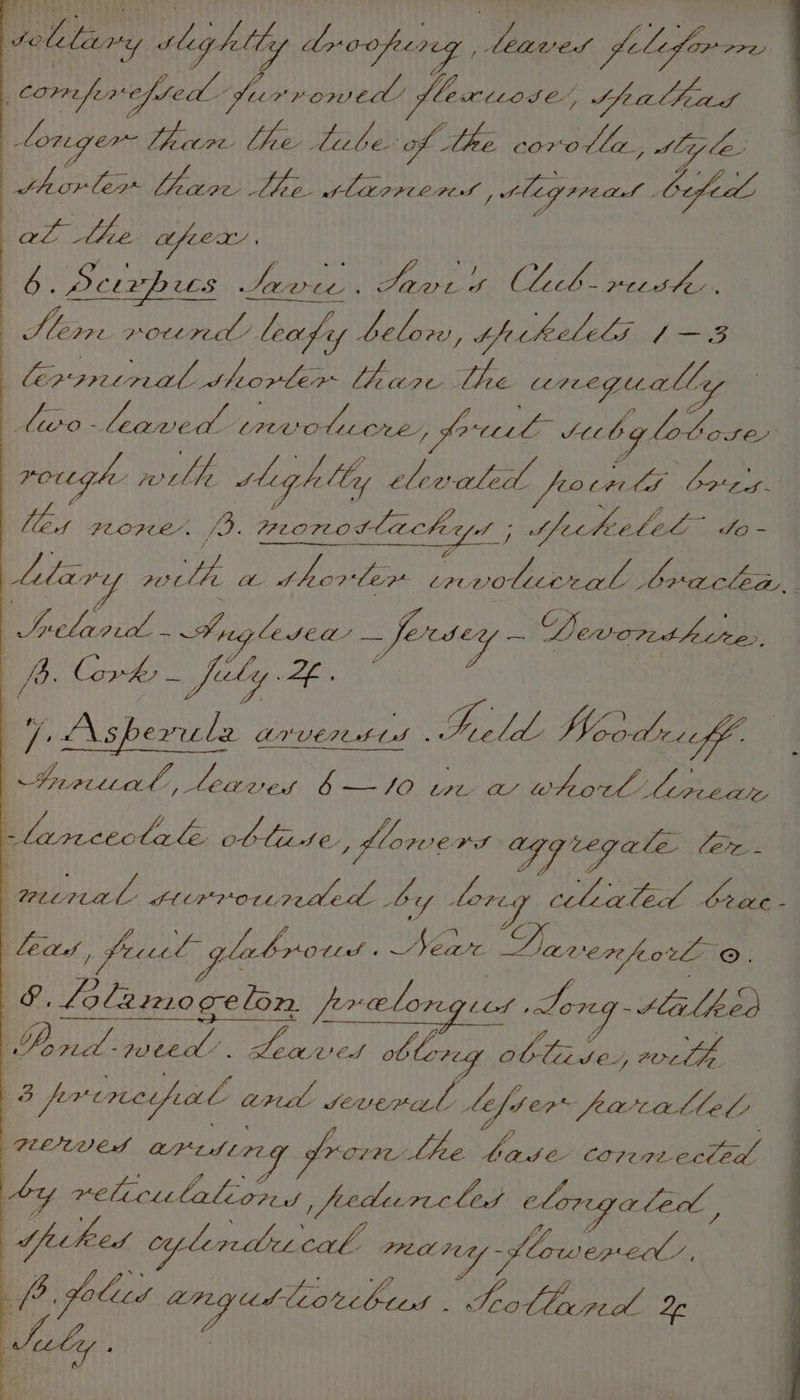 solitary slightly drooping, leaves filiform
compressed furrowed flexuose, spathas
longer than the tube of the corolla, style
shorter than the stamens, stigmas bifid
at the apex.
6. Scirpus Savii. Savi's Club-rush.
Stem round leafy below, spikelets 1—3
terminal shorter than the unequally
two-leaved involucre, fruit subglobose
rough with slightly elevated points bris-
tles none. β. monostachys; spikelet so-
litary with a shorter involucral bractea.
Ireland - Anglesea — Jersey — Devonshire.
β. Cork — July. ♃.
7. Asperula arvensis. Field Woodruff.
Annual, leaves 6—10 in a whorl linear
-lanceolate obtuse, flowers aggregate ter-
minal surrounded by long ciliated brac-
teas, fruit glabrous. Near Davenport ☉.
8. Potamogeton prælongus. Long-stalked
Pond-weed. Leaves oblong obtuse, with
3 principal and several lesser parallel
nerves arising from the base connected
by reticulations, peduncles elongated,
spikes cylindrical many-flowered.
β. foliis angustioribus. Scotland ♃
July.